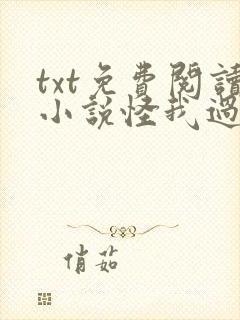 txt免費閱讀
小說怪我過
俏茹